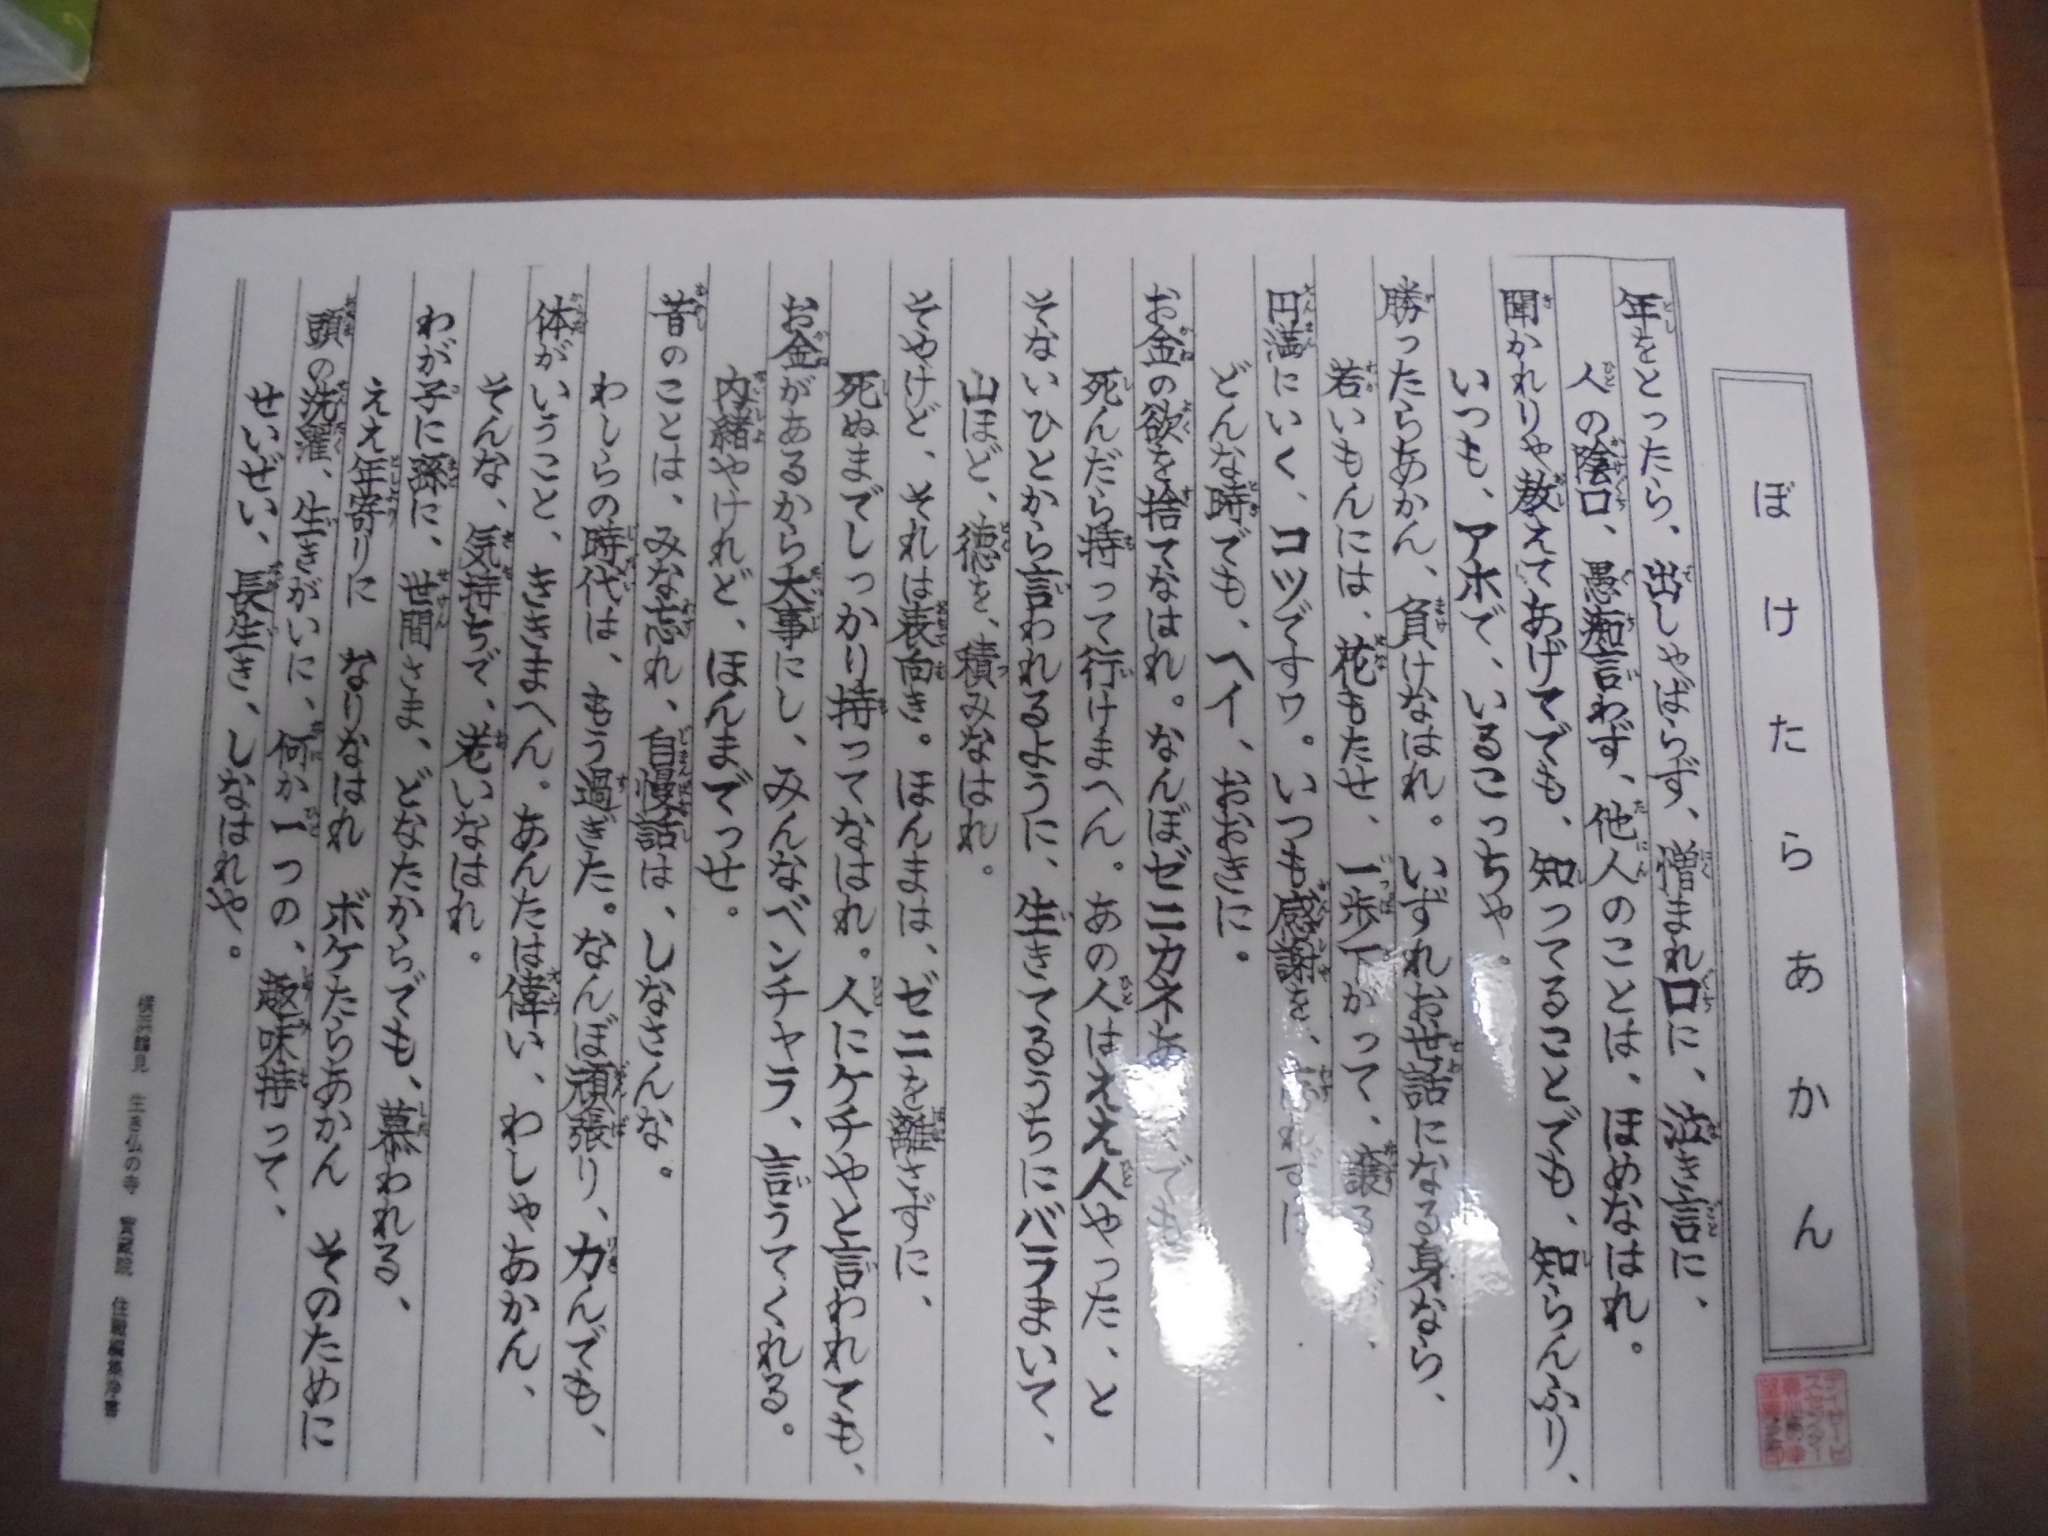 ぼけたらあかん
年をとったら、出しゃばらず、憎まれ口に、泣き言に、
人の陰口、愚痴言わず、他人のことは、ほめなはれ。
聞かれりゃ教えてあげてでも、知ってることでも、知らんふり、
いつも、アホで、いるこっちゃ。
勝ったらあかん、負けなはれ。いずれお世話になる身なら、
若いもんには、花もたせ、一歩下がって、譲る
円満にいく、コツですワ。いつも感謝を、
どんな時でも、ヘイ、おおきに。
お金の欲を捨てなはれ。なんぼゼニカネ
死んだら持って行けまへん。あの人はええ人やった、と
そないひとから言われるように、生きてるうちにバラまいて、
山ほど、徳を、積みなはれ。
そやけど、それは表向き。ほんまは、ゼニを離さずに、
死ぬまでしっかり持ってなはれ。人にケチやと言われても、
お金があるから大事にし、みんなベンチャラ、言うてくれる。
内緒やけれど、ほんまでっせ。
昔のことは、みな忘れ、自慢話は、しなさんな。
わしらの時代は、もう過ぎた。なんぼ頑張り、力んでも、
体がいうこと、ききまへん。あんたは偉い、わしゃあかん、
そんな、気持ちで、老いなはれ。
わが子に孫に、世間さま、どなたからでも、慕われる、
ええ年寄りに なりなはれ ボケたらあかん そのために
頭の洗濯、生きがいに、何か一つの、趣味持って、
せいぜい、長生き、しなはれや。
生き仏の寺 貫蔵院 住職編集浄書
デイサービ
スセンター